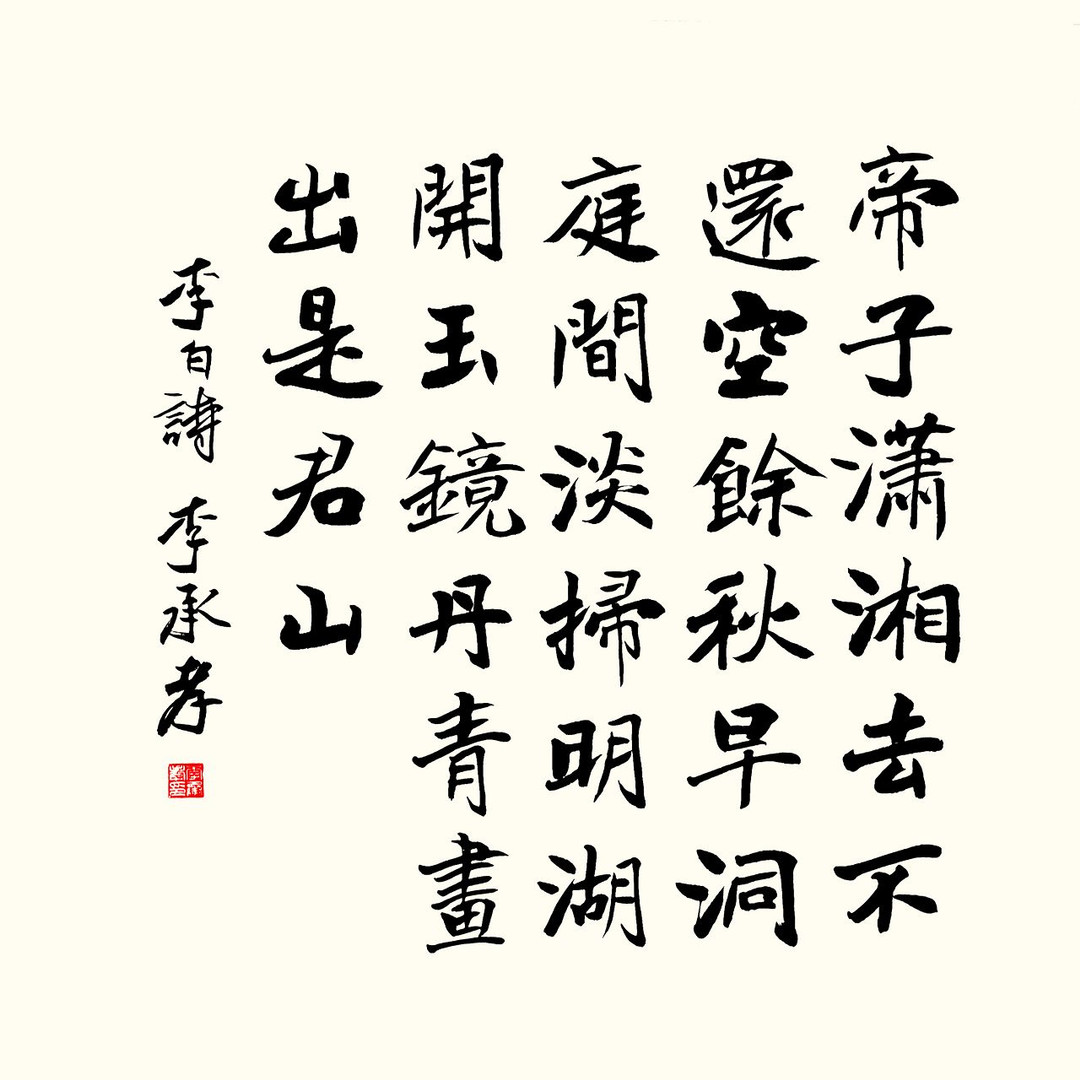 帝子瀟湘去不
還空餘秋早洞
庭間淡掃明湖
開玉鏡丹青畫
出是君山
李白詩 李承孝